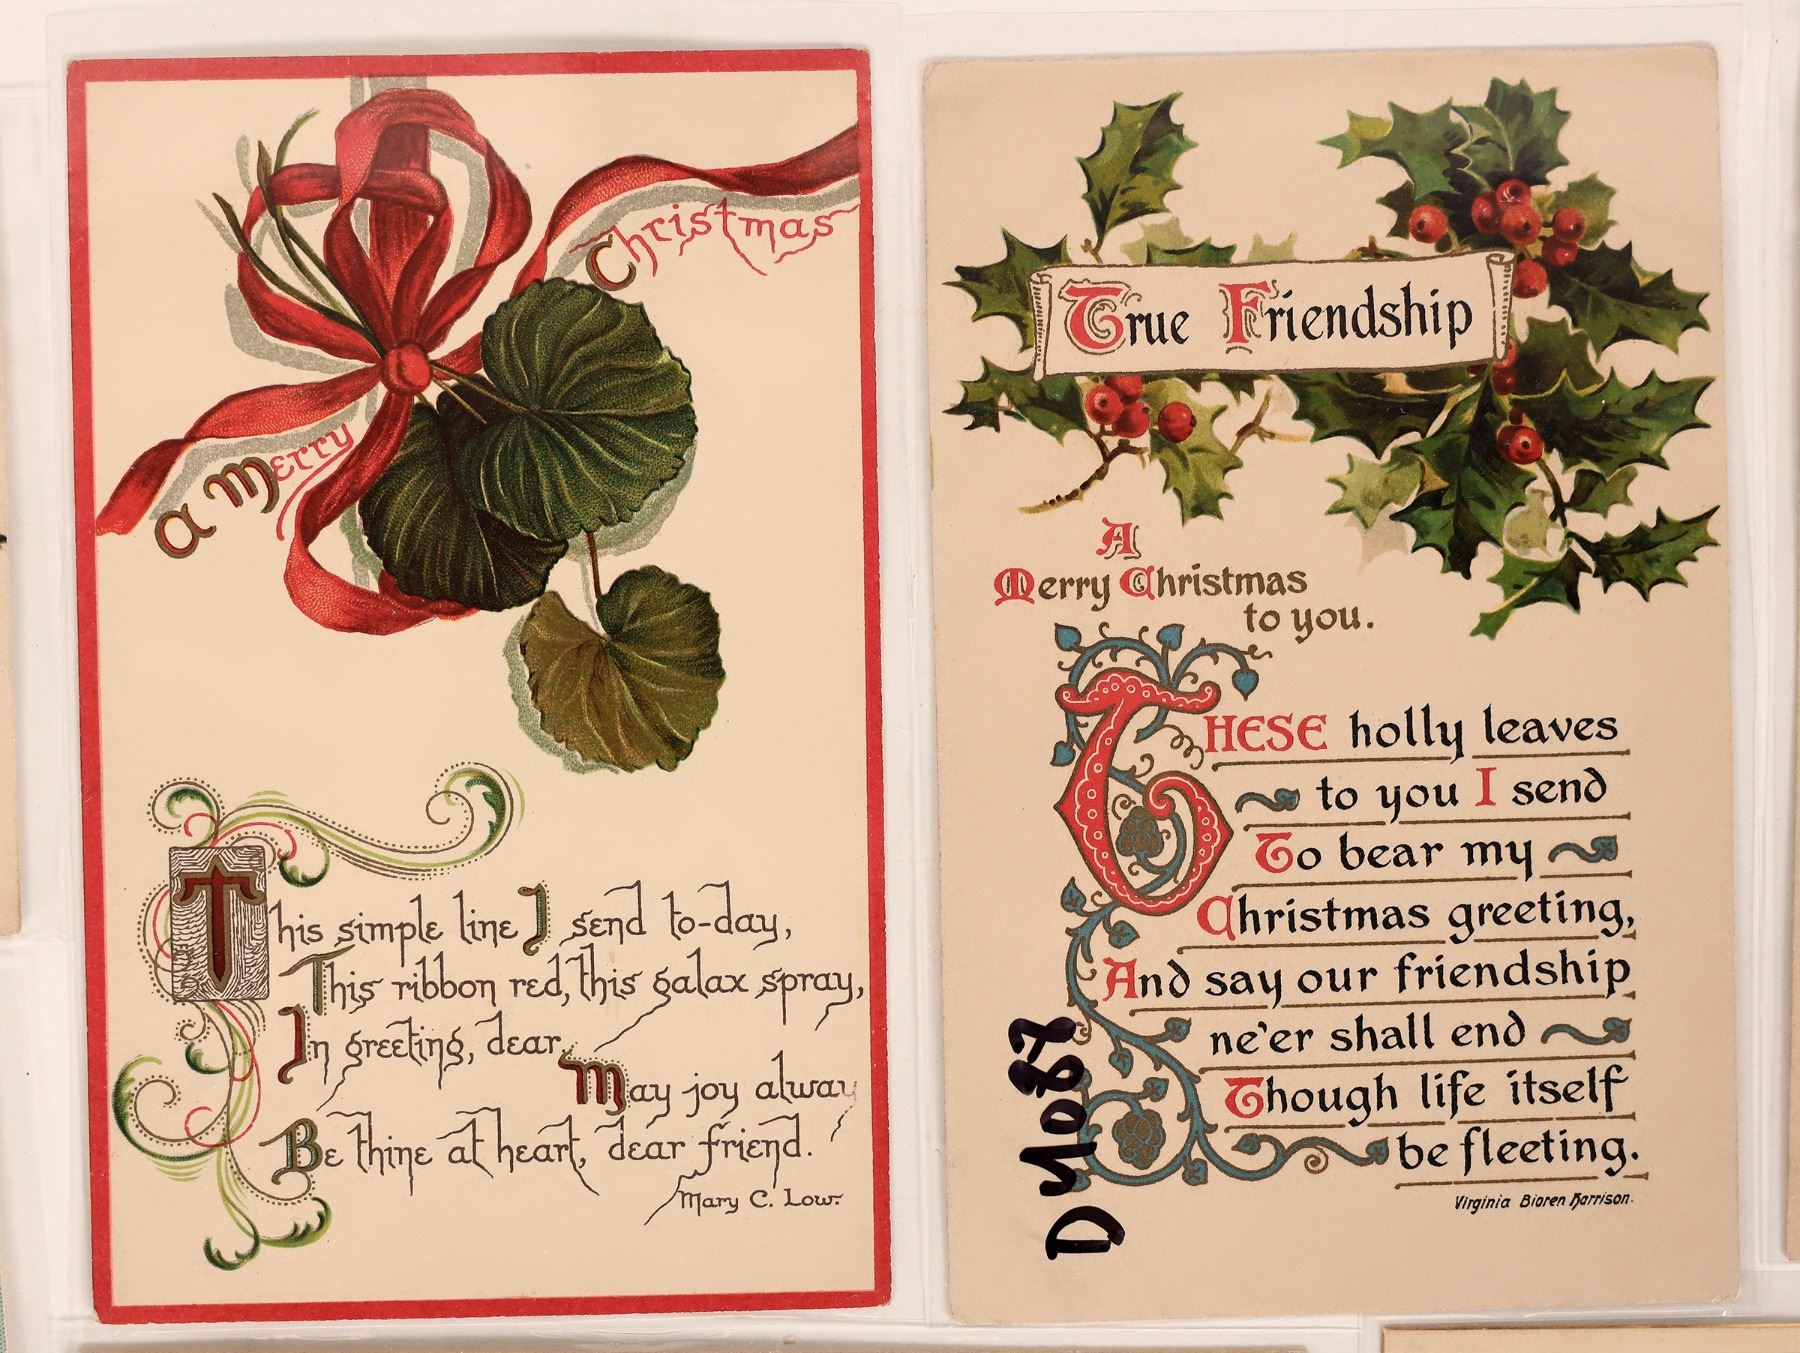 A Merry
Christmas
This simple line I send to-day,
This ribbon red, this galax spray,
In greeting, dear,
May joy alway
Be thine at heart, dear friend.
Mary C. Low.
True Friendship
A
Merry Christmas
to you.
THESE holly leaves
to you I send
To bear my
Christmas greeting,
And say our friendship
ne'er shall end
Though life itself
be fleeting.
Virginia Bioren Harrison.